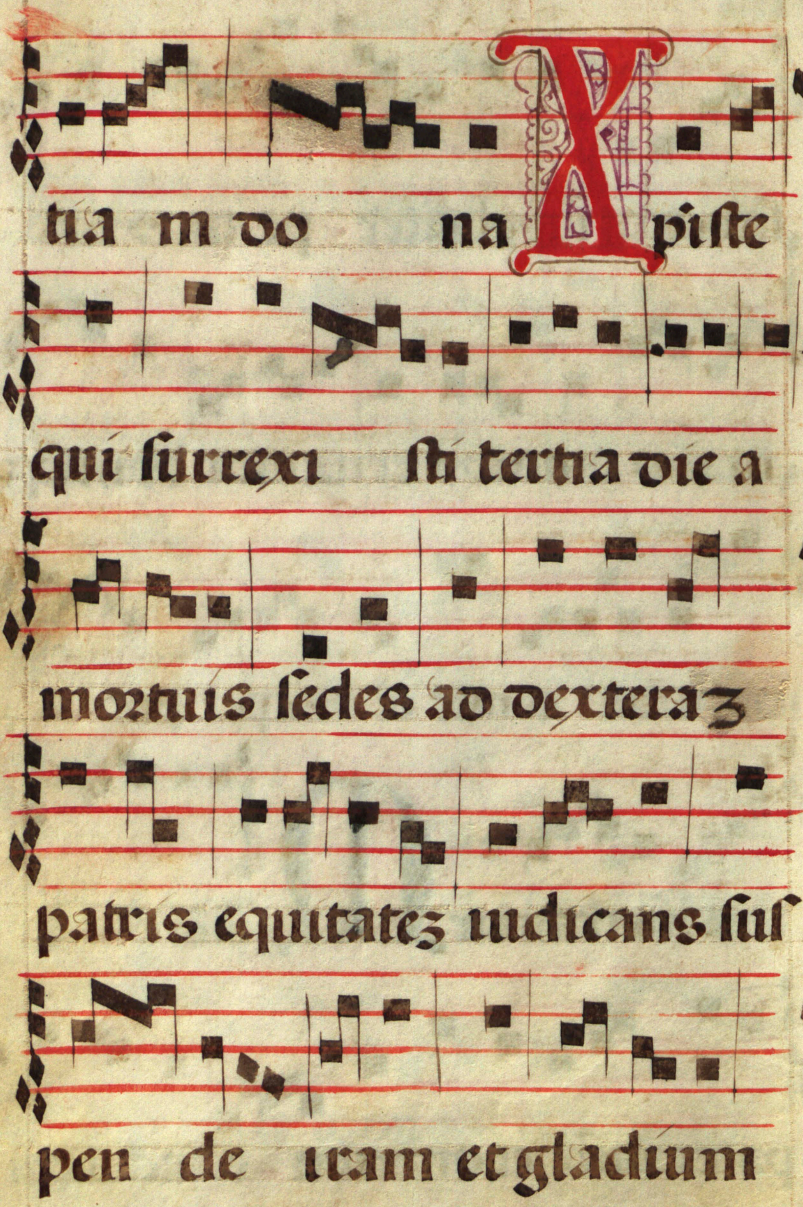 tia in do na Xpiste
qui surrexi sti tertia die a
mortuis sedes ad dexteraʒ
patris equitateʒ iudicans sus
pen de iram et gladium